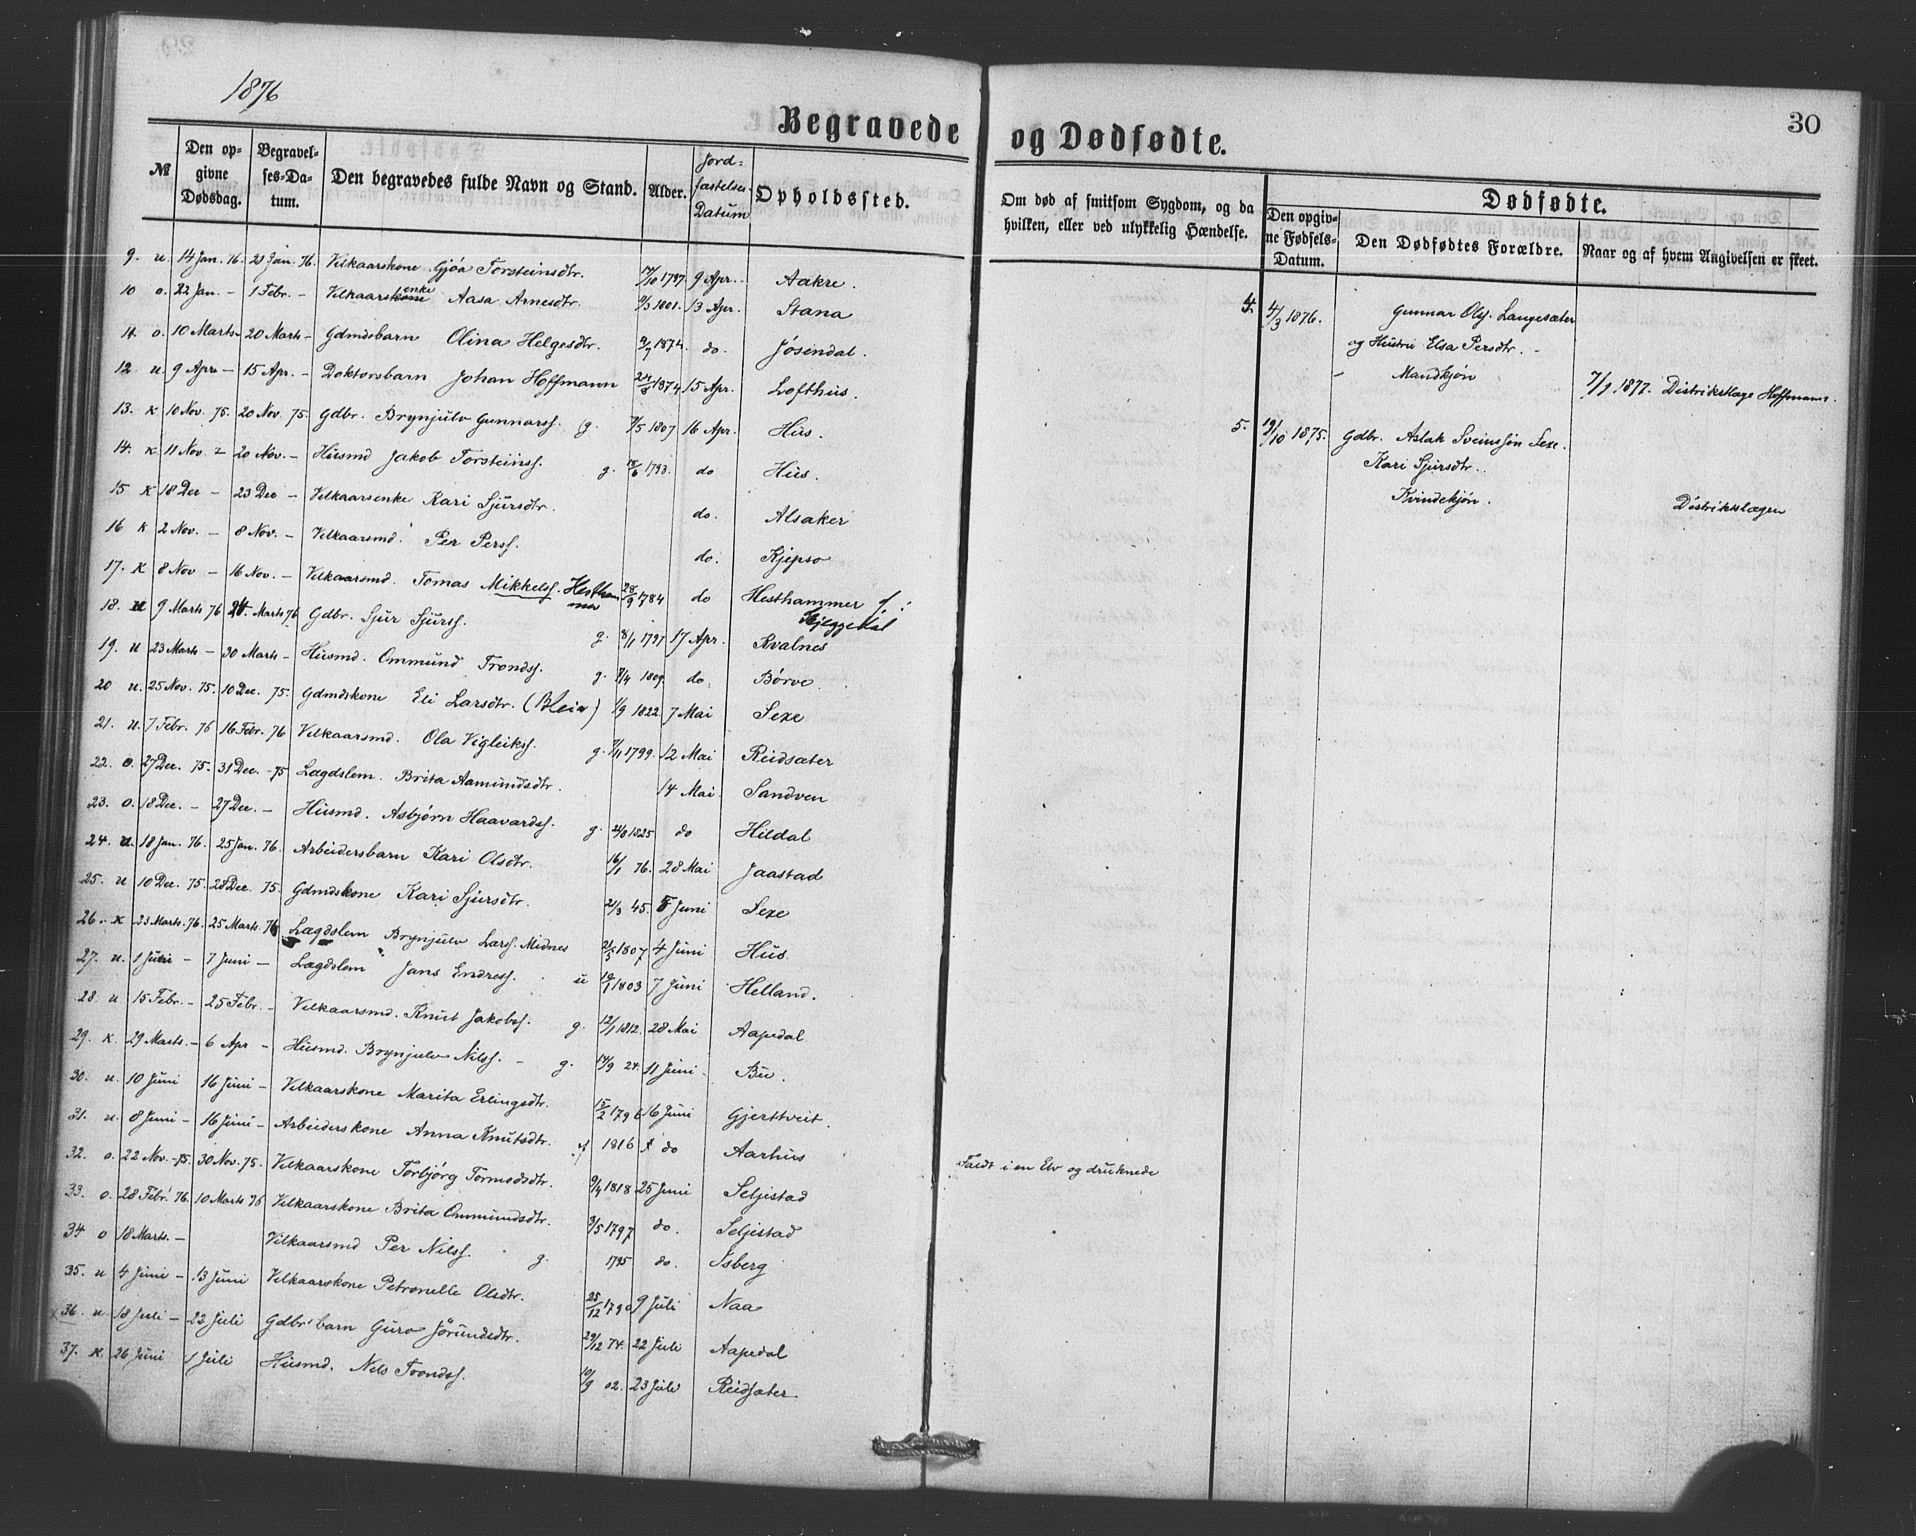 1876
Begravede og Dødfødte.
30
№ | Den opgivne Dødsdag. | Begravelses-Datum. | Den begravedes fulde Navn og Stand. | Alder. | Jordfæstelses Datum | Opholdssted. | Om død af smitsom Sygdom, og da hvilken, eller ved ulykkelig Hændelse. | Dødfødte.
Den opgivne Fødsels-Datum. | Den Dødfødtes Forældre. | Naar og af hvem Angivelsen er skeet.
9. u. 14 Jan. 76. 23 Jan. 76. Vilkaarskone Gjøa Torsteinsdtr. 17/10 1797 9 Apr. Aakre.
10 o. 22 Jan. – 1 Febr. – Vilkaarskone enke Aasa Arnesdtr. 9/3 1801. 13 Apr. Stana
11. o. 10 Marts – 20 Marts – Gdmdsbarn Olina Helgesdtr. 9/7 1874. do. Jøsendal.
12 u. 9 Apr – 15 Apr. – Doktorsbarn Johan Hoffmann 24/8 1874 15 Apr. Lofthus.
13. K 10 Nov. 75. 20 Nov. 75. Gdbr. Brynjulv Gunnarsf. g. 7/5 1807 16 Apr. Hus.
14. K 11 Nov – 20 Nov. – Husmd Jakob Torsteinsf. g. 18/6 1793. do Hus.
15 K 18 Dec – 23 Dec – Vilkaarsenke Kari Sjursdtr. do. Alsaker
16 K 2 Nov. – 8 Nov. – Vilkaarsmd. Per Persf. do. Kjepso
17. K 8 Nov – 16 Nov. – Vilkaarsmd. Tomas Mikkelsf. Hesthammer 28/9 1784 do Hesthammer
18. u 9 Marts 76 24. Marts 76 Gdbr. Sjur Sjursf. g. 8/1 1797 17 Apr. Kvalnes
19. u 23 Marts – 30 Marts – Husmd. Ommund Trondsf. g. 7/4 1809. do. Børve.
20 u. 25 Nov. 75. 10 Dec. 75. Gdmdskone Eli Larsdtr. (Bleie) 1/9 1822. 7 Mai Sexe
21. u. 7 Febr. 76 16 Febr. 76 Vilkaarsmd. Ola Vigleiksf. g. 7/11 1799. 12 Mai Reidsæter
22. o. 27 Dec. 75. 31 Dec. – 75 Lægdslem. Brita Aamundsdtr. 14 Mai Sandven
23. o. 18 Dec. – 27 Dec. – Husmd. Asbjørn Haavardsf. g. 21/8 1825 do Hildal
24. u. 18 Jan. 76. 25 Jan. 76. Arbeidersbarn Kari Olsdtr. 16/1 76. 28 Mai Jaastad
25. u 10 Dec. 75. 28 Dec. 75. Gdmdskone Kari Sjursdtr. 21/3 45. 5 Juni Sexe
26. K 23 Marts. 76. 25 Marts. 76 Lægdslem Brynjulv Larsf. Midnes 21/5 1807 4 Juni Hus.
27. u. 1 Juni – 7 Juni – Lægdslem Jans Endresf. u 19/7 1803 7 Juni Helland.
28. u 15 Febr. – 25 Febr. – Vilkaarsmd. Knut Jakobsf. g. 12/1 1812. 28 Mai Aapedal
29. K. 29 Marts. – 6 Apr – Husmd. Brynjulv Nilsf. – g. 14/9 24. 11 Juni – Bu.
30. u. 10 Juni 16 Juni – Vilkaarskone Marita Erlingsdtr. 15/2 1796 16 Juni Gjerttveit.
31. u. 8 Juni – 16 Juni – Arbeiderskone Anna Knutsdtr. 1816 do Aarhus
32. o. 22 Nov. – 75. 30 Nov. 75. Vilkaarskone Torbjørg Tormodsdtr. 9/4 1818 25 Juni Seljestad Faldt i en Elv og druknede
33. o. 28 Febr. 76. 10 Marts 76 Vilkaarskone Brita Ommundsdtr. 3/5 1797 do. Seljestad
34 o 18 Marts. – Vilkaarsmd Per Nilsf. g. 1795 do. Isberg
35. u 4 Juni – 13 Juni Vilkaarskone Petronelle Olsdtr. 25/12 1790 9 Juli Naa
36. u. 18 Juli – 22 Juli Gdbr. barn Guro Jørundsdtr. 29/12 74. 22 Juli Aapedal
37. K. 26 Juni 1 Juli Husmd. Nels Trondsf. 10/9 02. 23 Juli Reidsæter
4. 4/3 1876. Gunnar Olsf. Langesæter
og Hustru Elsa Persdtr. –
Mandkjøn 7/1 1877. Distriktslæge Hoffmann.
5. 19/10 1875. Gdbr. Aslak Sveinssøn Sexe.
Kari Sjursdtr.
Kvindekjøn. Distriktslægen